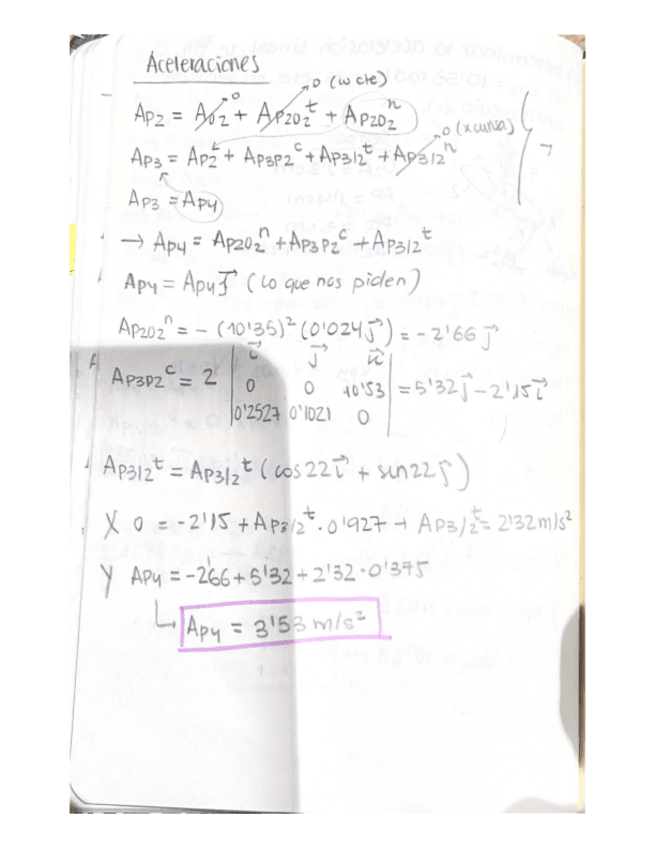 Aceleraciones
Ap2 = Ao2 + Ap2o2^t + Ap2o2^n
0 0 (w cte)
Ap3 = Ap2 + Ap3p2^c + Ap3|2^t + Ap3|2^n
0 (x curva)
Ap3 = Ap4
→ Ap4 = Ap2o2^n + Ap3p2^c + Ap3|2^t
Ap4 = Ap4 j⃗ (Lo que nos piden)
Ap2o2^n = - (10'35)² (0'024 j⃗) = - 2'66 j⃗
i⃗ j⃗ k⃗
Ap3p2^c = 2 | 0 0 10'53 | = 5'32 j⃗ - 2'15 i⃗
0'2527 0'1021 0
Ap3|2^t = Ap3/2^t (cos22 i⃗ + sin22 j⃗)
X 0 = -2'15 + Ap3/2^t · 0'927 → Ap3/2^t = 2'32 m/s²
Y Ap4 = -2'66 + 5'32 + 2'32 · 0'375
↳ Ap4 = 3'53 m/s²